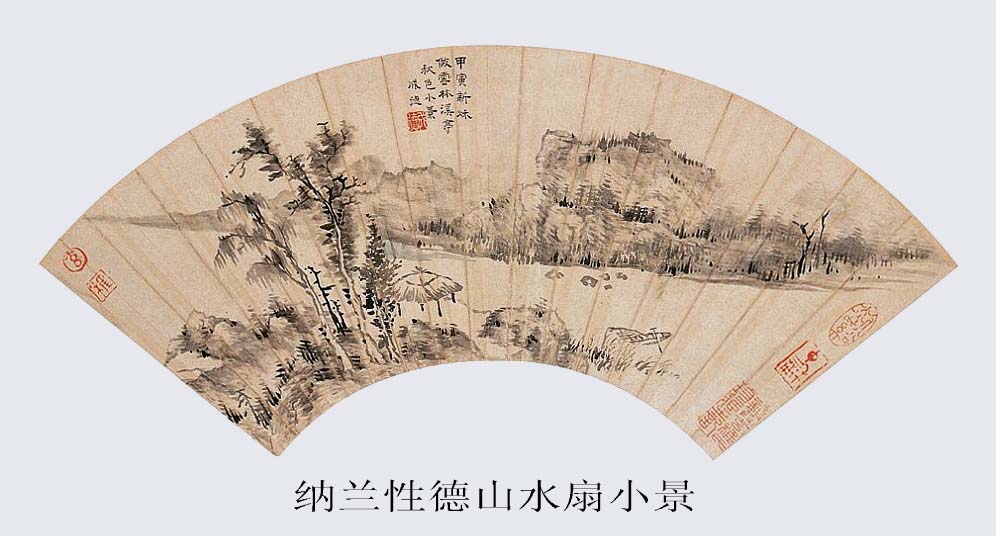 甲寅新秌
倣雲林溪亭
秋色小景
成德
纳兰性德山水扇小景